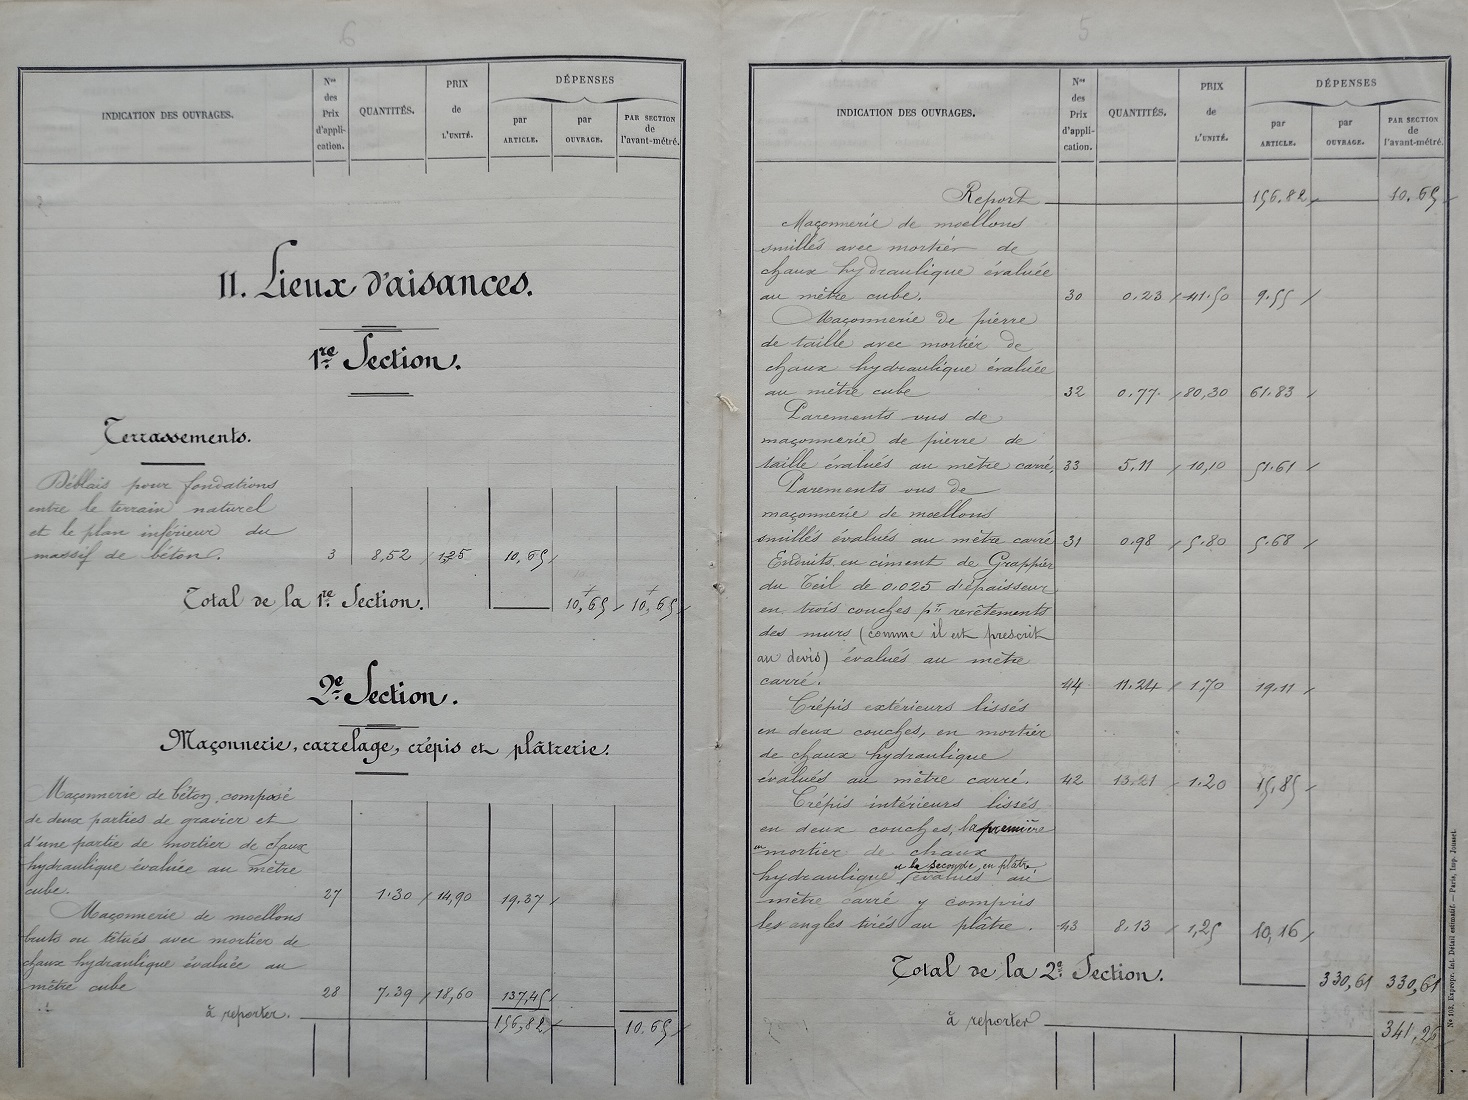 6
INDICATION DES OUVRAGES.
Nos des Prix d'appli- cation.
QUANTITÉS.
PRIX de L'UNITÉ.
DÉPENSES
par ARTICLE.
par OUVRAGE.
PAR SECTION de l'avant-métré.
II. Lieux d'aisances.
1re Section.
Terrassements.
Déblais pour fondations
entre le terrain naturel
et le plan inférieur du
massif de béton. 3 8,52 1,25 10,65
Total de la 1re Section. 10,65 10,65
2e Section.
Maçonnerie, carrelage, crépis et plâtrerie.
Maçonnerie de béton composé
de deux parties de gravier et
d'une partie de mortier de chaux
hydraulique évaluée au mètre
cube. 27 1.30 14,90 19.37
Maçonnerie de moellons
bruts ou têtués avec mortier de
chaux hydraulique évaluée au
mètre cube 28 7.39 18,60 137,45
à reporter. 156,82 10.65
5
INDICATION DES OUVRAGES.
Nos des Prix d'appli- cation.
QUANTITÉS.
PRIX de L'UNITÉ.
DÉPENSES
par ARTICLE.
par OUVRAGE.
PAR SECTION de l'avant-métré.
Report 156.82 10.65
Maçonnerie de moellons
smillés avec mortier de
chaux hydraulique évaluée
au mètre cube. 30 0.23 41.50 9.55
Maçonnerie de pierre
de taille avec mortier de
chaux hydraulique évaluée
au mètre cube 32 0.77 80,30 61.83
Parements vus de
maçonnerie de pierre de
taille évalués au mètre carré, 33 5.11 10,10 51.61
Parements vus de
maçonnerie de moellons
smillés évalués au mètre carré 31 0.98 5.80 5.68
Enduits en ciment de Grappier
du Teil de 0.025 d'épaisseur
en trois couches pr revêtements
des murs (comme il est prescrit
au devis) évalués au mètre
carré. 44 11.24 1,70 19.11
Crépis extérieurs lissés
en deux couches, en mortier
de chaux hydraulique
évalués au mètre carré. 42 13.21 1.20 15,85
Crépis intérieurs lissés
en deux couches, la première
en mortier de chaux
et la seconde, en plâtre,
hydraulique évalués au
mètre carré y compris
les angles tirés au plâtre. 43 8.13 1,25 10,16
Total de la 2e Section. 330,61 330,61
à reporter 341,26
No 102. Expropr. Int. Détail estimatif. — Paris, Imp. Jousset.